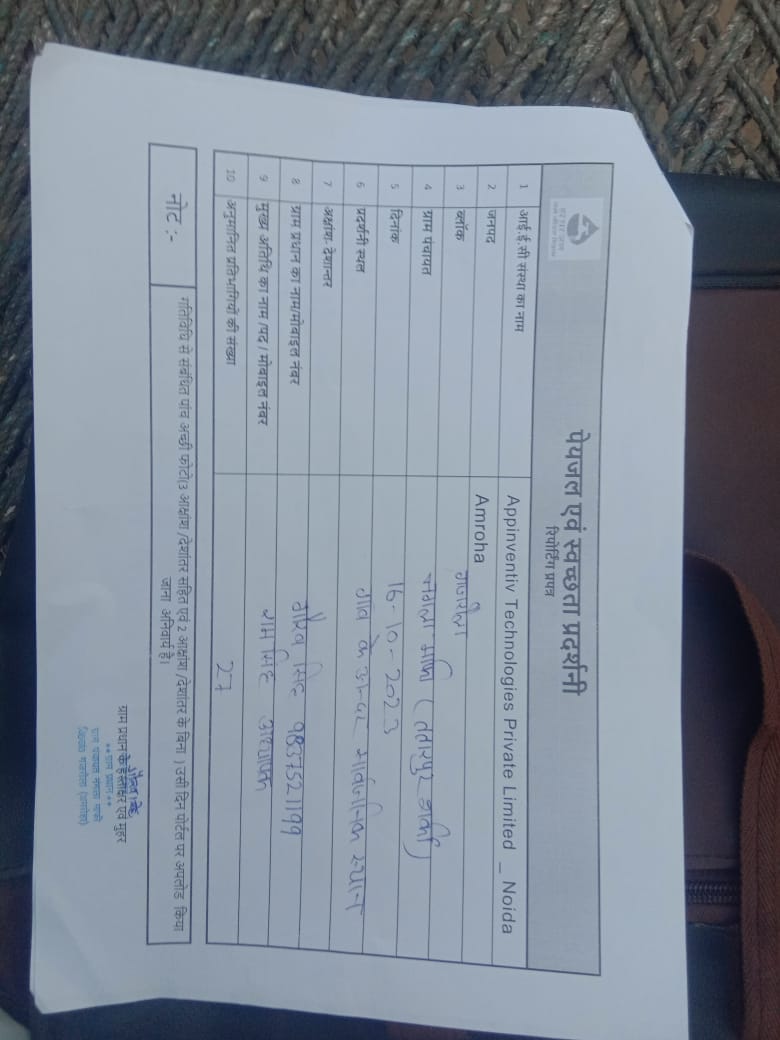 पेयजल एवं स्वच्छता प्रदर्शनी
रिपोर्टिंग प्रपत्र
1 आई.ई.सी संस्था का नाम Appinventiv Technologies Private Limited _ Noida
2 जनपद Amroha
3 ब्लॉक गजरौला
4 ग्राम पंचायत नगला माफी
5 दिनांक 16-10-2023
6 प्रदर्शनी स्थल गांव के अन्दर सार्वजनिक स्थान
7 अक्षांश-देशान्तर
8 ग्राम प्रधान का नाम/मोबाइल नंबर सिंह 9837521199
9 मुख्य अतिथि का नाम /पद / मोबाइल नंबर राम सिंह अध्यापक
10 अनुमानित प्रतिभागियों की संख्या 27
नोट :- गतिविधि से संबंधित पांच अच्छी फोटो(3 आक्षांश /देशांतर सहित एवं 2 आक्षांश /देशांतर के बिना ) उसी दिन पोर्टल पर अपलोड किया
जाना अनिवार्य है।
ग्राम प्रधान के हस्ताक्षर एवं मुहर